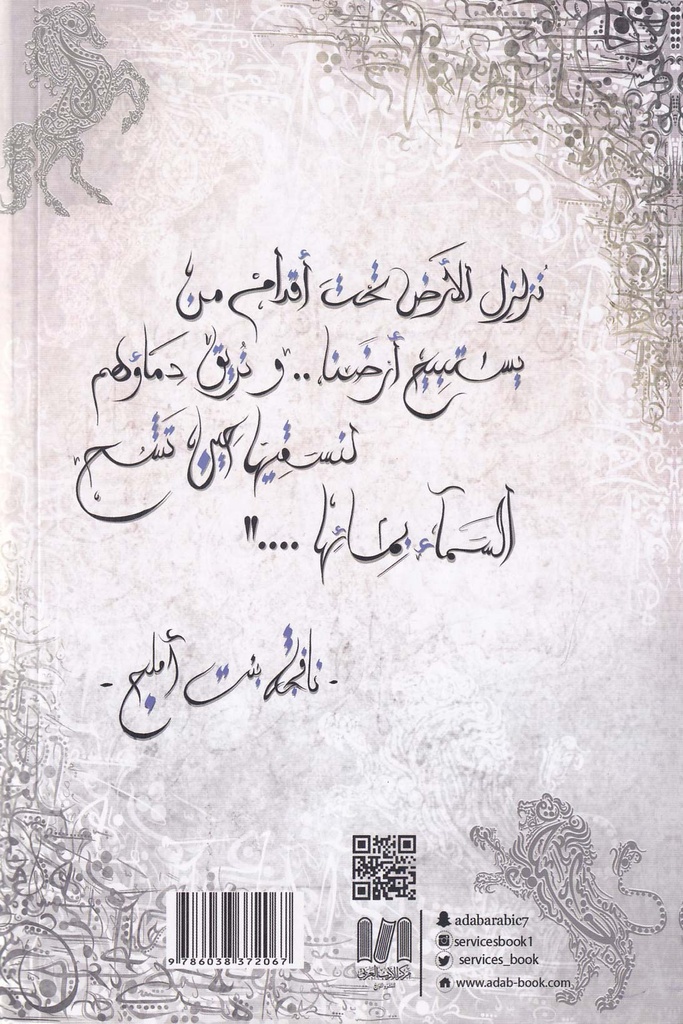 نُزلزل الأرض تحت أقدام من
يستبيح أرضنا .. و نُريق دماؤهم
لنسقيها حين تشح
السماء بمائها ...."
- نافجة بنت أملج -
adabarabic7
servicesbook1
services_book
www.adab-book.com
مركز الأدب العربي
للنشر والتوزيع
9 786038 372067